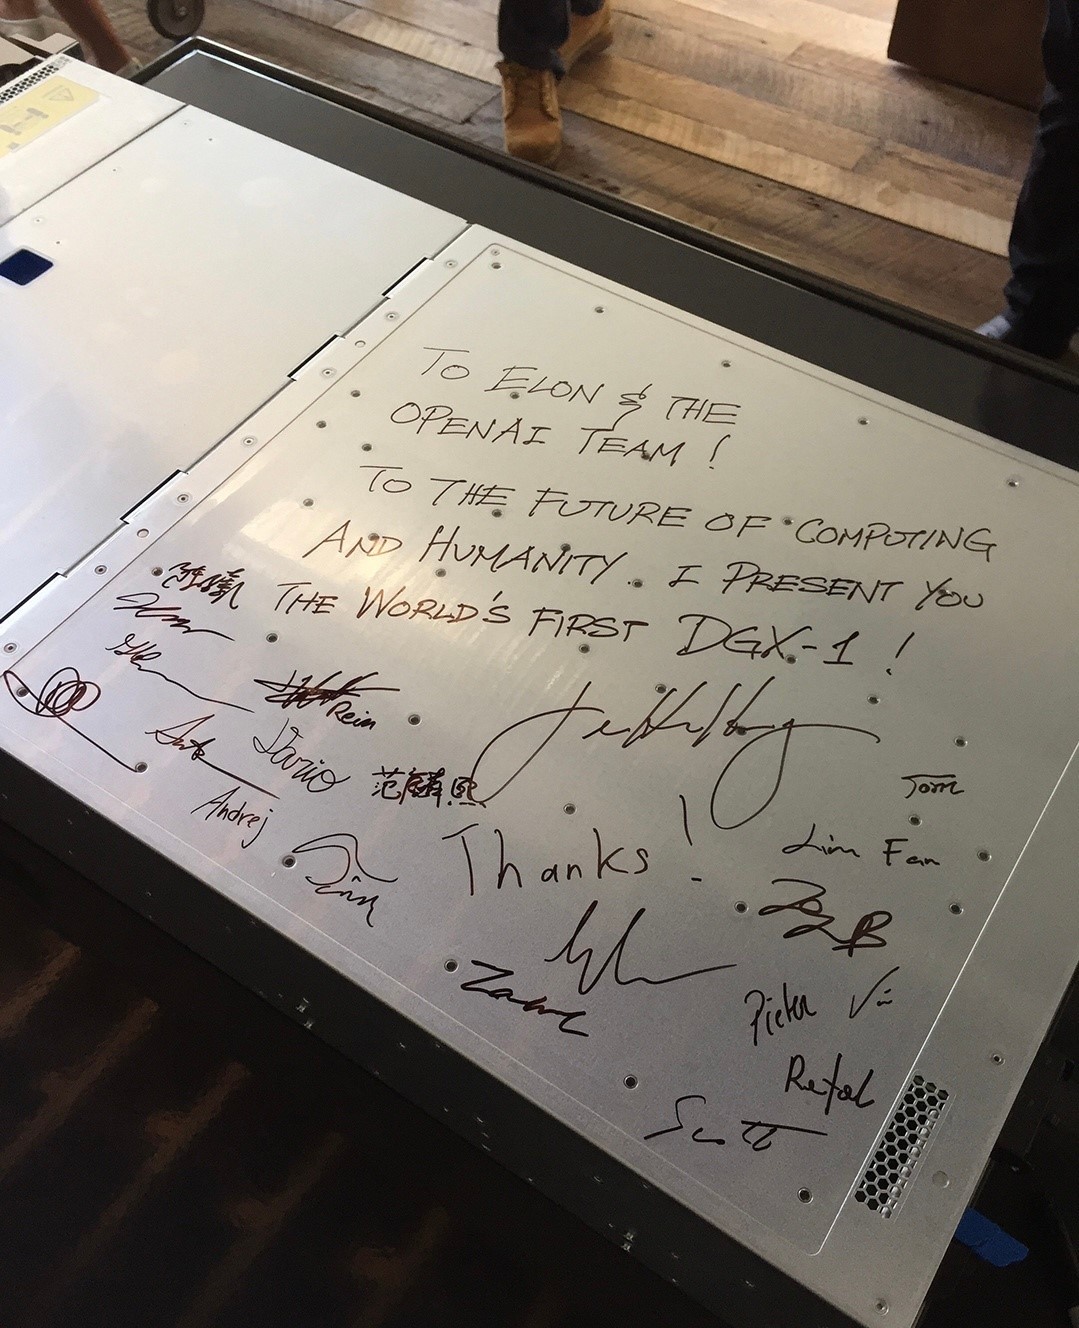 TO ELON & THE
OPENAI TEAM !
TO THE FUTURE OF COMPUTING
AND HUMANITY. I PRESENT YOU
THE WORLD'S FIRST DGX-1 !
Rein
Dario
范麟熙
Andrej
Tom
Thanks !
Jim Fan
Pieter
Rafal
Scott